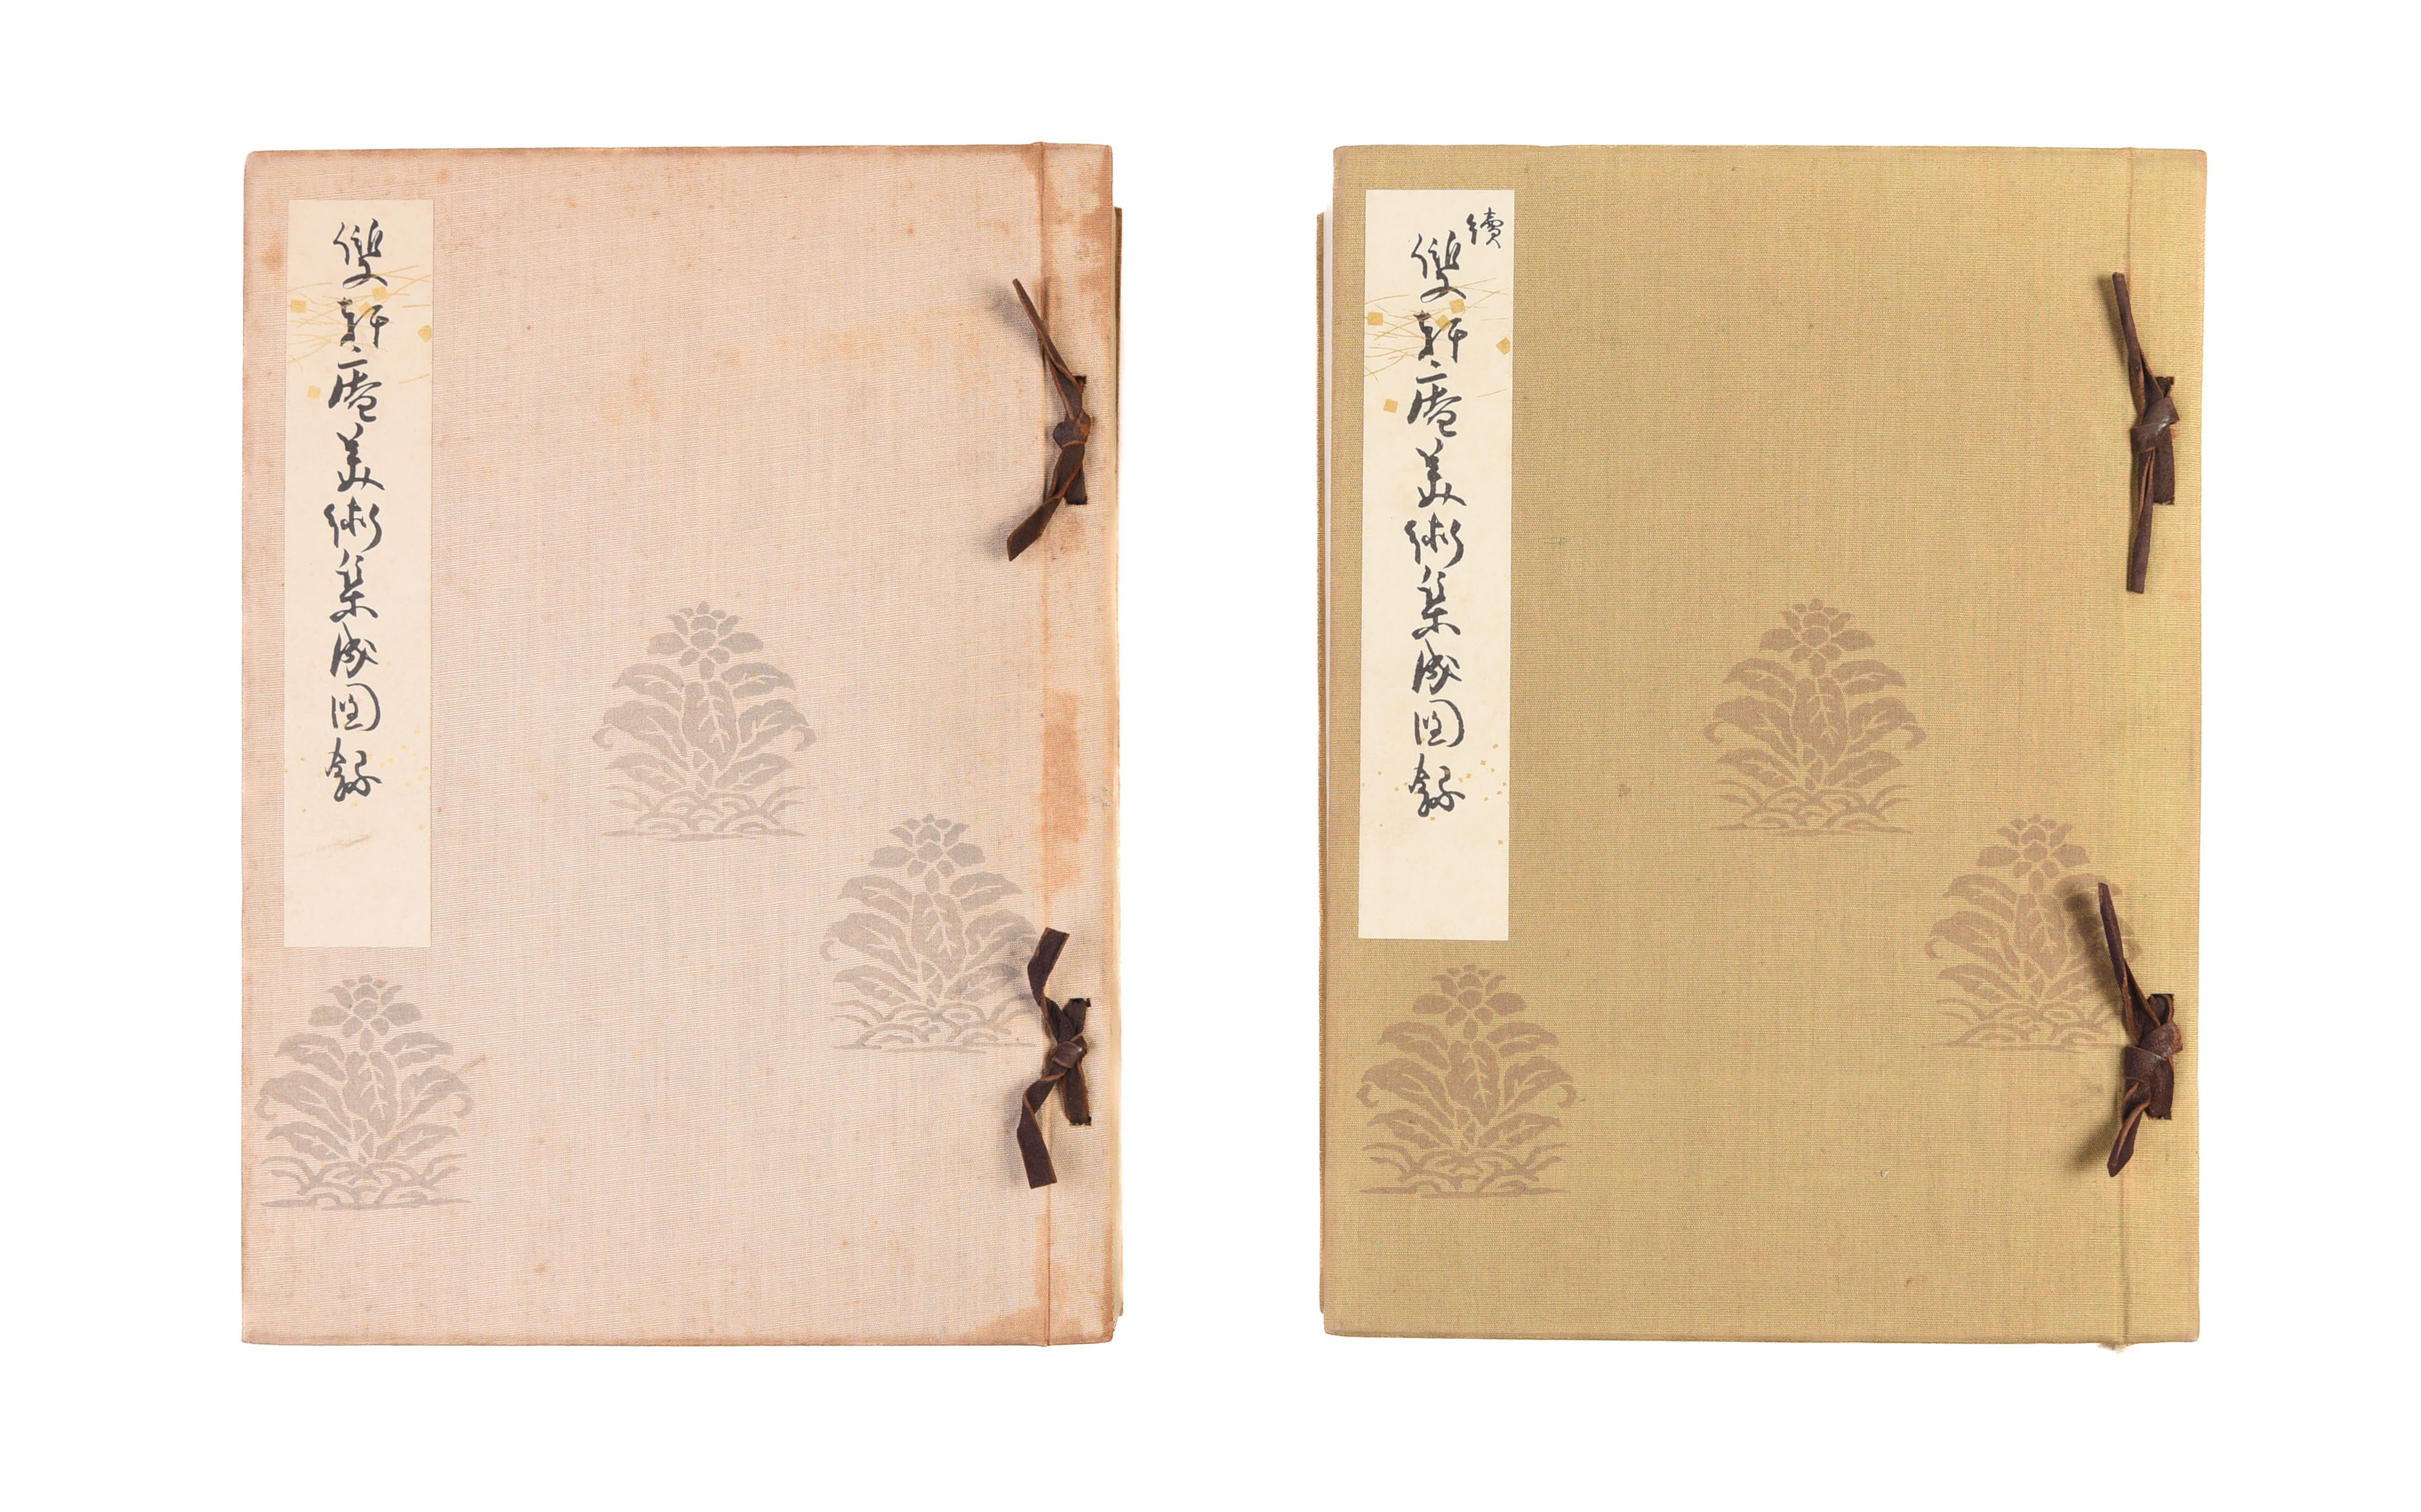 雙軒庵美術集成図録
續
雙軒庵美術集成図録